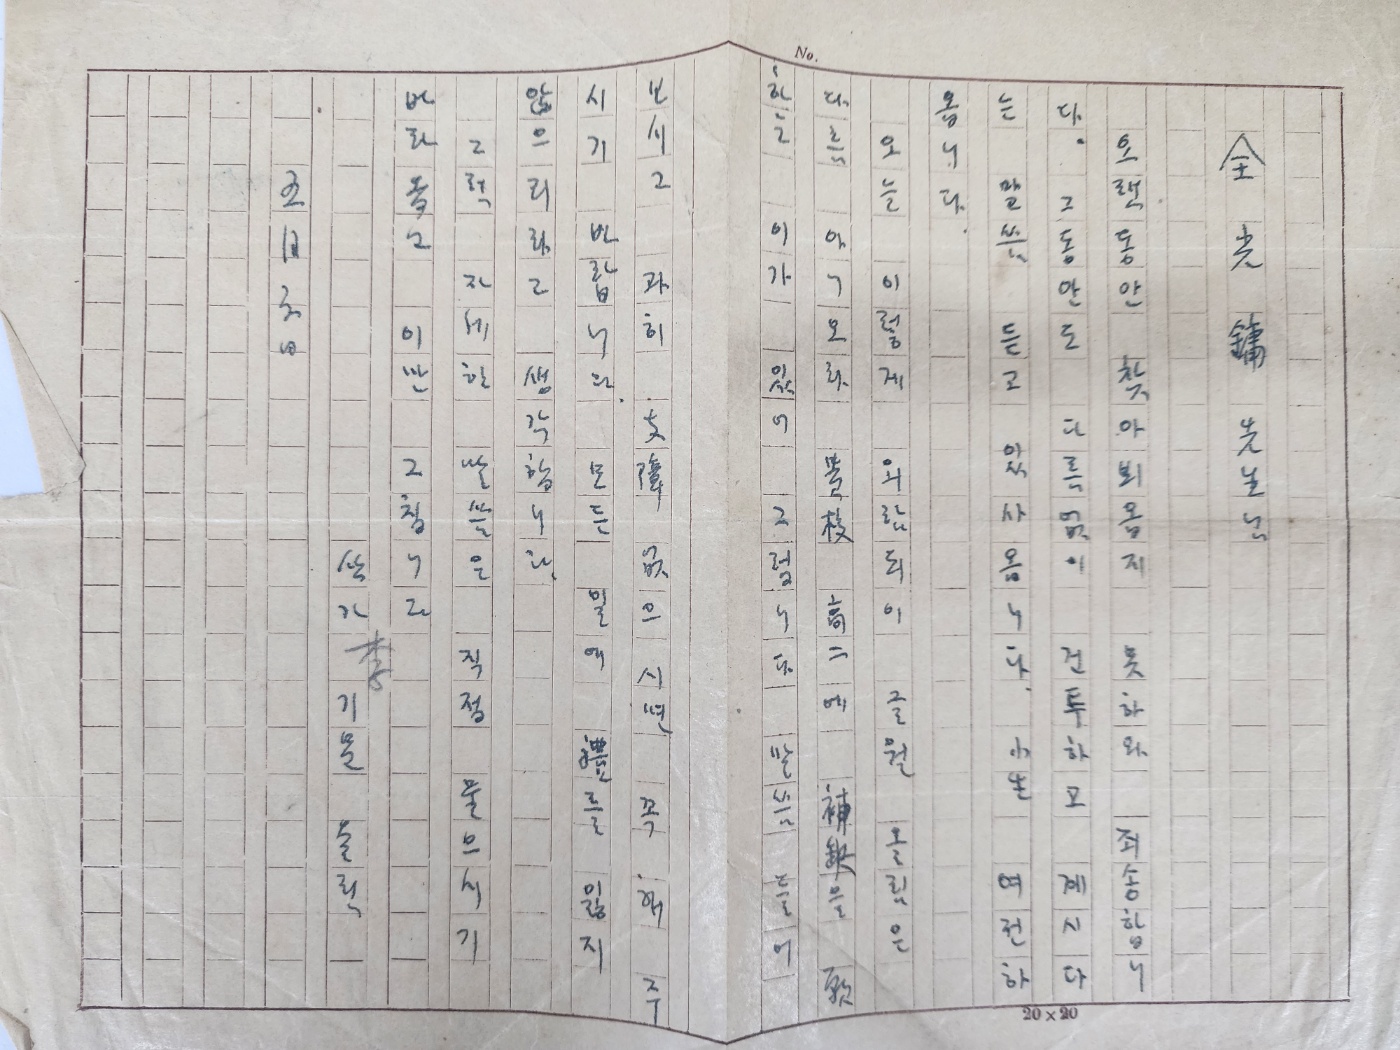 No.
全光鏞 先生님
오랫동안 찾아뵈옵지 못하와 죄송합니
다. 그동안도 다름없이 건투하고 계시다
는 말씀 듣고 있사옵니다. 小生 여전하
옵니다.
오늘 이렇게 외람되이 글월 올림은
다름 아니오라 貴校 高二에 補缺을 欲
하는 이가 있어 그럽니다 말씀 들어
보시고 과히 支障 없으시면 꼭 해 주
시기 바랍니다. 모든 일에 禮를 잃지
않으리라고 생각합니다.
그럭 자세한 말씀은 직접 물으시기
바라옵고 이만 그칩니다
李 기문 올림
20×20